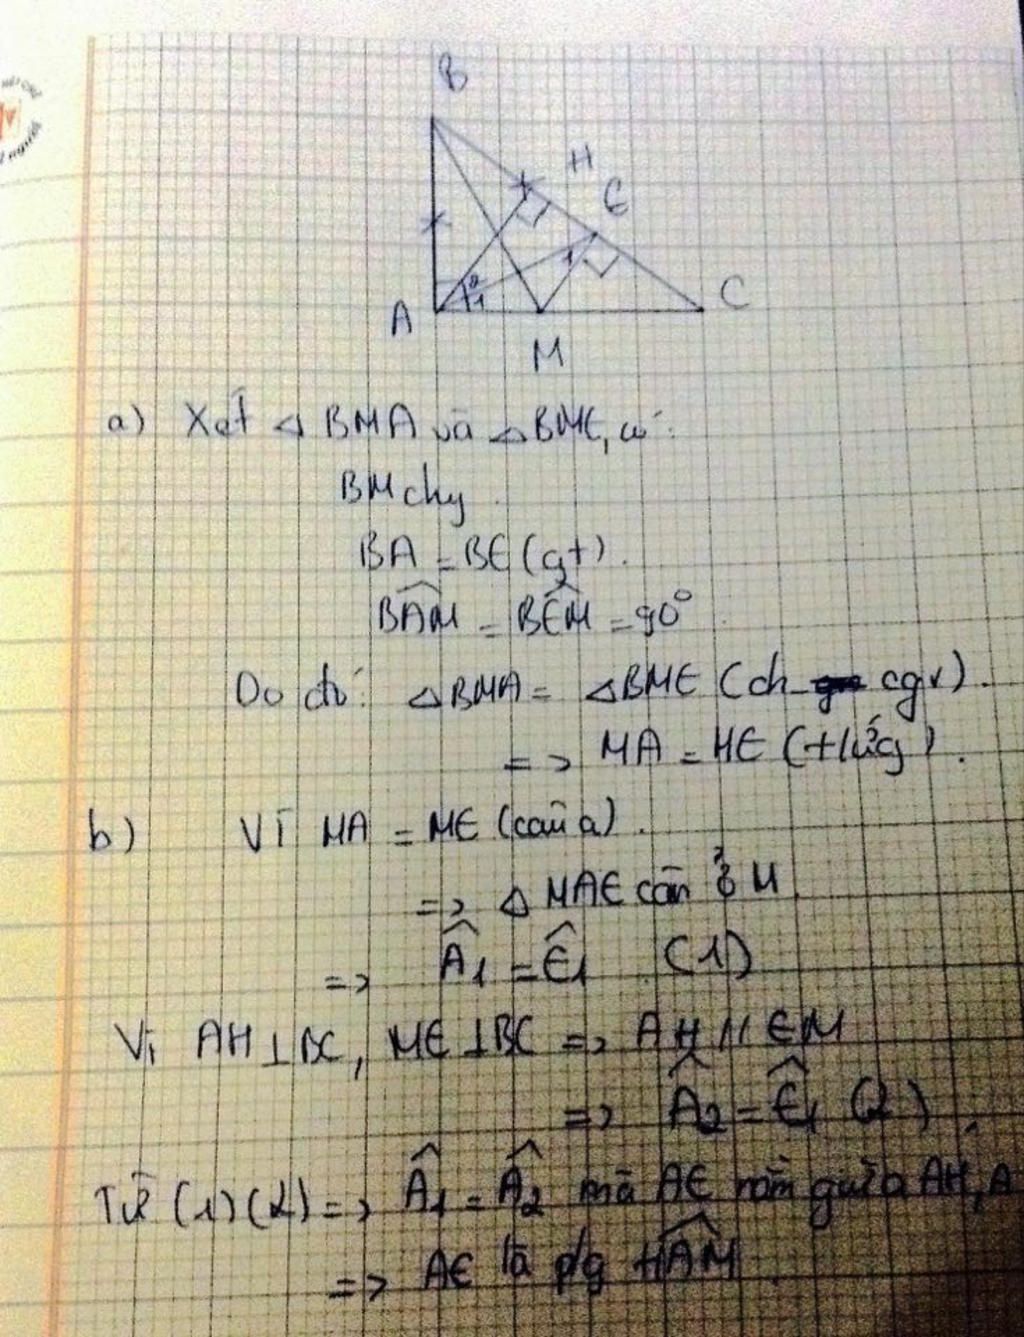 B
H
E
2
1
1
A
M
C
a) Xét △ BMA và △ BME, có:
BM chg
BA = BE (gt).
BÂM = BÊM = 90°
Do đó: △BMA = △BME (ch - cgv).
=> MA = ME (tứg).
b) Vì MA = ME (câu a).
=> △ MAE cân ở M
=> Â1 = Ê1 (1)
Vì AH ⊥ BC, ME ⊥ BC => AH // EM
=> Â2 = Ê1 (2)
Từ (1)(2) => Â1 = Â2 mà AE nằm giữa AH, A
=> AE là p/g HÂM